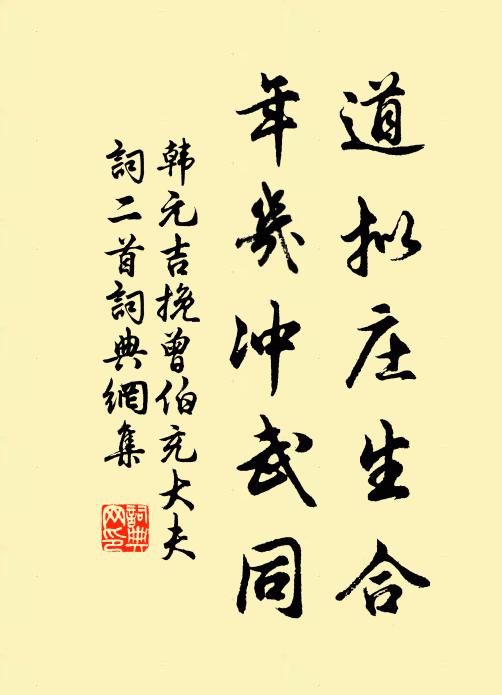 道拟庄生合
年几冲武同
韩元吉挽曾伯充大夫
词二首词典網集
詞典
网印